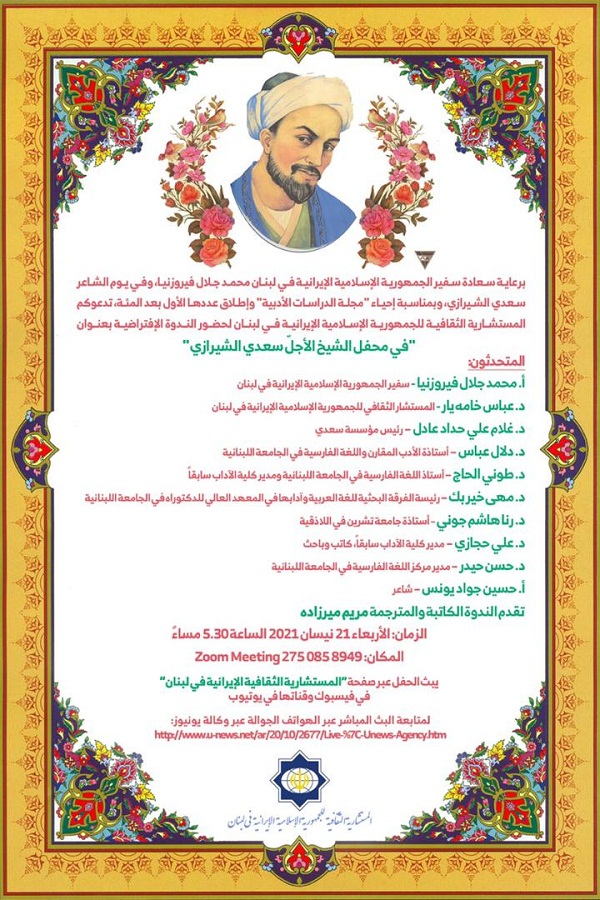 برعاية سعادة سفير الجمهورية الإسلامية الإيرانية في لبنان محمد جلال فيروزنيا، وفي يوم الشاعر
سعدي الشيرازي، وبمناسبة إحياء "مجلة الدراسات الأدبية" وإطلاق عددها الأول بعد المئة، تدعوكم
المستشارية الثقافية للجمهورية الإسلامية الإيرانية في لبنان لحضور الندوة الإفتراضية بعنوان
"في محفل الشيخ الأجلّ سعدي الشيرازي"
المتحدثون:
أ. محمد جلال فيروزنيا - سفير الجمهورية الإسلامية الإيرانية في لبنان
د. عباس خامه يار - المستشار الثقافي للجمهورية الإسلامية الإيرانية في لبنان
د. غلام علي حداد عادل – رئيس مؤسسة سعدي
د. دلال عباس – أستاذة الأدب المقارن واللغة الفارسية في الجامعة اللبنانية
د. طوني الحاج – أستاذ اللغة الفارسية في الجامعة اللبنانية ومدير كلية الآداب سابقاً
د. مهى خير بك – رئيسة الفرقة البحثية للغة العربية وآدابها في المعهد العالي للدكتوراه في الجامعة اللبنانية
د. رنا هاشم جوني – أستاذة جامعة تشرين في اللاذقية
د. علي حجازي – مدير كلية الآداب سابقاً، كاتب وباحث
د. حسن حيدر – مدير مركز اللغة الفارسية في الجامعة اللبنانية
أ. حسين جواد يونس – شاعر
تقدم الندوة الكاتبة والمترجمة مريم ميرزاده
الزمان: الأربعاء 21 نيسان 2021 الساعة 5.30 مساءً
المكان: Zoom Meeting 275 085 8949
يبث الحفل عبر صفحة "المستشارية الثقافية الإيرانية في لبنان"
في فيسبوك وقناتها في يوتيوب
لمتابعة البث المباشر عبر الهواتف الجوالة عبر وكالة يونيوز:
http://www.u-news.net/ar/20/10/2677/Live-%7C-Unews-Agency.htm
المستشارية الثقافية للجمهورية الإسلامية الإيرانية في لبنان